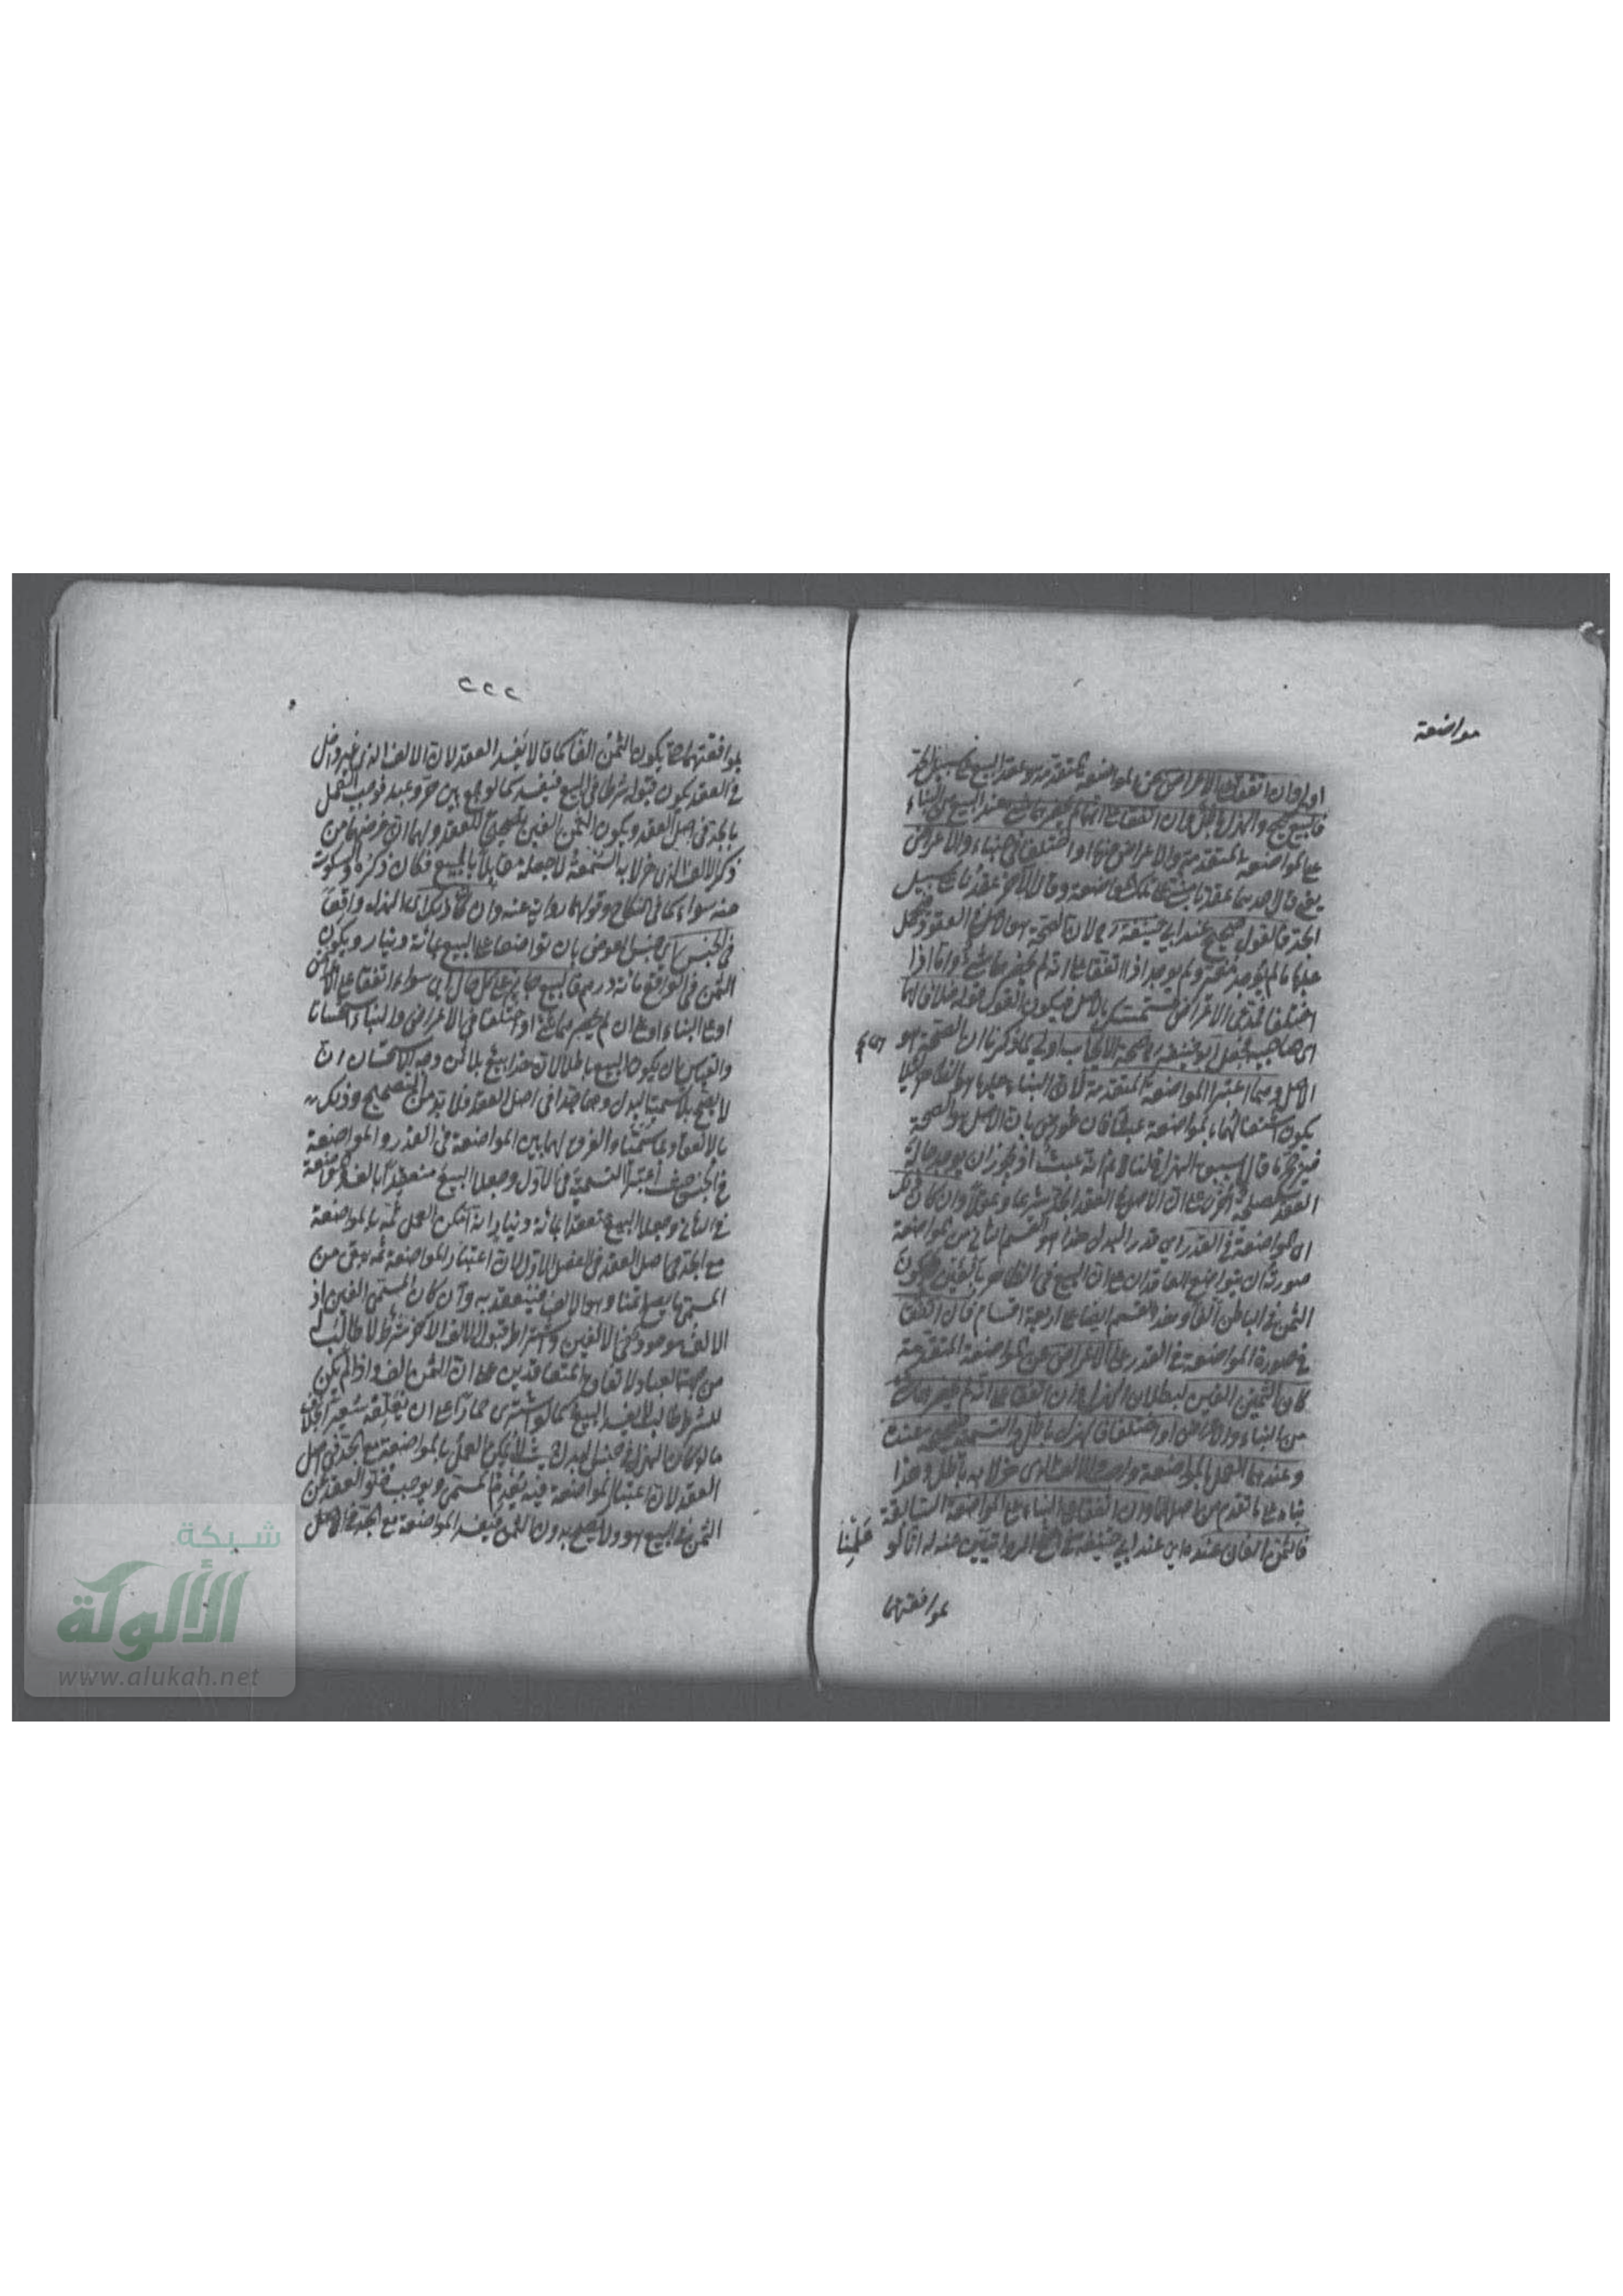 مواضعة
اولى وان اتفقا على الاعراض عن المواضعة المتقدمة وعقد البيع على سبيل الجد
فالبيع صحيح والهزل باطل وان اتفقا على انه لم يحضرهما شئ عند البيع من البناء
على المواضعة المتقدمة والاعراض عنها او اختلفا في البناء والاعراض
يعني قال احدهما عقدنا بناء على تلك المواضعة وقال الآخر عقدنا على سبيل
الجد فالقول صحيح عند ابي حنيفة رح لان الصحة هو الاصل في العقود فيحمل
عليها ما لم يوجد مغير ولم يوجد اذا اتفقا على انه لم يحضرهما شئ واما اذا
اختلفا فمدعي الاعراض متمسك بالاصل فيكون القول قوله خلافا لهما
اي لصاحبيه فجعل ابو حنيفة رح صحة الايجاب اولى لما ذكرنا ان الصحة هو
الاصل وهما اعتبرا المواضعة المتقدمة لان البناء عليها هو الظاهر كيلا
يكون اشتغالهما بالمواضعة عبثا فان عورض بان الاصل هو الصحة
العقد لمصلحة اخرى على ان الاصل في العقد الجد شرعا وعقلا وان كان ذلك
اي المواضعة في القدر اي قدر البدل هذا هو القسم الثاني من المواضعة
صورته ان يتواضع العاقدان على ان البيع في الظاهر بالفين ويكون
الثمن في الباطن الفا وهذا القسم ايضا على اربعة اقسام فان اتفقا
في صورة المواضعة في القدر على الاعراض عن المواضعة المتقدمة
كان الثمن الفين لبطلان الهزل وان اتفقا على انه لم يحضرهما شئ
من البناء والاعراض او اختلفا فالهزل باطل والتسمية صحيحة عنده
وعندهما العمل بالمواضعة واجب والالف الذي هزلا به باطل وهذا
بناء على ما تقدم من اصلهما وان اتفقا على البناء على المواضعة السابقة
فالثمن الفان عنده اي عند ابي حنيفة في اصح الروايتين عنه له انا لو عملنا
بموافقتهما
٢٢٢
بموافقتهما حتى يكون الثمن الفا كما قالا يفسد العقد لان الالف الذي غير داخل
في العقد يكون قبوله شرطا في البيع فيفسد كما لو جمع بين حر وعبد فوجب العمل
بالجد في اصل العقد ويكون الثمن الفين تصحيحا للعقد ولهما ان غرضهما من
ذكر الالف الذي هزلا به السمعة لا جعله مقابلا بالمبيع فكان ذكره والسكوت
عنه سواء كما في النكاح وقولهما رواية عنه وان كان ذلك اي الهزل واقعا
في الجنس اي جنس العوض بان تواضعا على البيع بمائة دينار ويكون
الثمن في الواقع مائة درهم فالبيع جائز على كل حال اي سواء اتفقا على الاعراض
او على البناء او على ان لم يحضرهما شئ او اختلفا في الاعراض والبناء استحسانا
والقياس ان يكون البيع باطلا لان هذا بيع بلا ثمن وجه الاستحسان ان
لا يصح بلا تسمية البدل وهما جدا في اصل العقد فلا بد من التصحيح وذلك
بالانعقاد بما سميا والفرق لهما بين المواضعة في القدر والمواضعة
في الجنس حيث اعتبرا التسمية في الاول وجعلا البيع منعقدا بالف
في الثاني وجعلا البيع منعقدا بمائة دينار انه امكن العمل ثمه بالمواضعة
مع الجد في اصل العقد في الفصل الاول لان اعتبار المواضعة ثمه يبقى من
المسمى ما يصلح ثمنا وهو الالف فينعقد به وان كان المسمى الفين اذ
الالف موجود في الالفين واشتراط قبول الالف الآخر شرط لا طالب له
من جهة العباد لاتفاق المتعاقدين على ان الثمن الف واذا لم يكن
للشرط طالب لا يفسد البيع كما لو اشترى حمارا على ان يعلفه شعيرا بخلاف
ما لو كان الهزل في جنس البدل حيث لا يمكن العمل بالمواضعة مع الجد في اصل
العقد لان اعتبار المواضعة فيه يعدم المسمى ويوجب خلو العقد عن
الثمن في البيع وهو لا يصح بدون الثمن فيفسد المواضعة مع الجد في اصل
شبكة
الألوكة
www.alukah.net